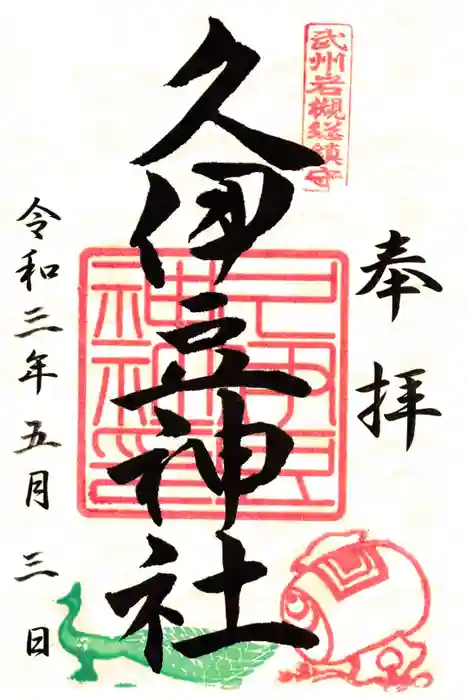 武州岩槻総鎮守
奉拝
久伊豆神社
令和三年五月三日